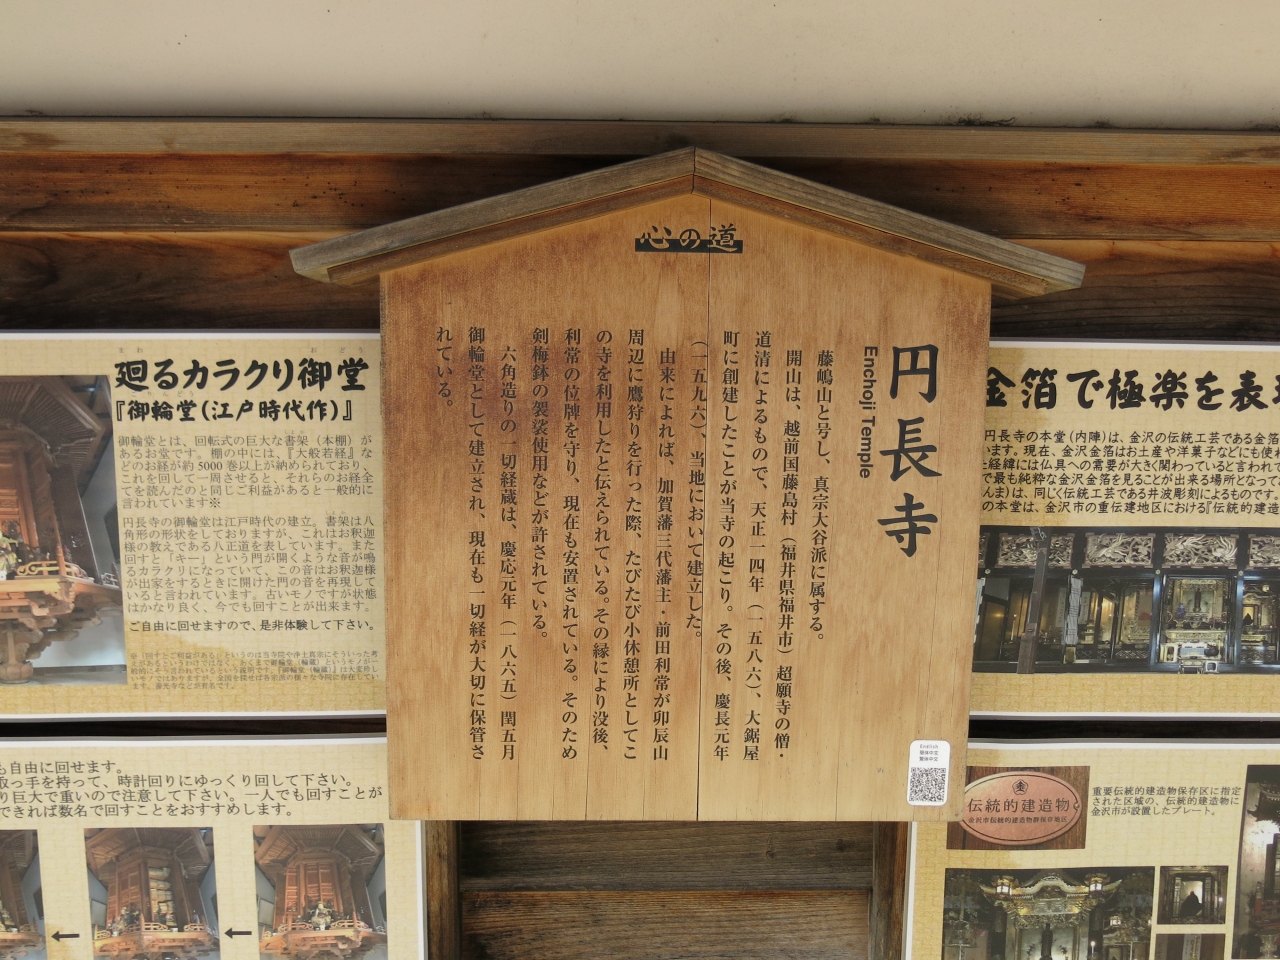 心の道
円長寺
Enchoji Temple
藤嶋山と号し、真宗大谷派に属する。
開山は、越前国藤島村（福井県福井市）超願寺の僧・
道清によるもので、天正一四年（一五八六）、大鋸屋
町に創建したことが当寺の起こり。その後、慶長元年
（一五九六）、当地において建立した。
由来によれば、加賀藩三代藩主・前田利常が卯辰山
周辺に鷹狩りを行った際、たびたび小休憩所としてこ
の寺を利用したと伝えられている。その縁により没後、
利常の位牌を守り、現在も安置されている。そのため
剣梅鉢の袈裟使用などが許されている。
六角造りの一切経蔵は、慶応元年（一八六五）閏五月
御輪堂として建立され、現在も一切経が大切に保管さ
れている。
English
簡体中文
繁体中文
廻るカラクリ御堂
『御輪堂（江戸時代作）』
御輪堂とは、回転式の巨大な書架（本棚）が
あるお堂です。棚の中には、『大般若経』な
どのお経が約5000巻以上が納められており、
これを回して一周させると、それらのお経全
てを読んだのと同じご利益があると一般的に
言われています※
円長寺の御輪堂は江戸時代の建立。書架は八
角形の形状をしておりますが、これはお釈迦
様の教えである八正道を表しています。また
回すと「キー」という門が開くような音が鳴
るカラクリになっていて、この音はお釈迦様
が出家をするときに開けた門の音を再現して
いると言われています。古いモノですが状態
はかなり良く、今でも回すことが出来ます。
ご自由に回せますので、是非体験して下さい。
も自由に回せます。
取っ手を持って、時計回りにゆっくり回して下さい。
り巨大で重いので注意して下さい。一人でも回すことが
できれば数名で回すことをおすすめします。
金箔で極楽を表
円長寺の本堂（内陣）は、金沢の伝統工芸である金箔
います。現在、金沢金箔はお土産や洋菓子などにも使わ
た経緯には仏具への需要が大きく関わっていると言われて
で最も純粋な金沢金箔を見ることが出来る場所となって
んま）は、同じく伝統工芸である井波彫刻によるものです。
の本堂は、金沢市の重伝建地区における『伝統的建造
伝統的建造物
金沢市伝統的建造物群保存地区
重要伝統的建造物保存区に指定
された区域の、伝統的建造物に
金沢市が設置したプレート。